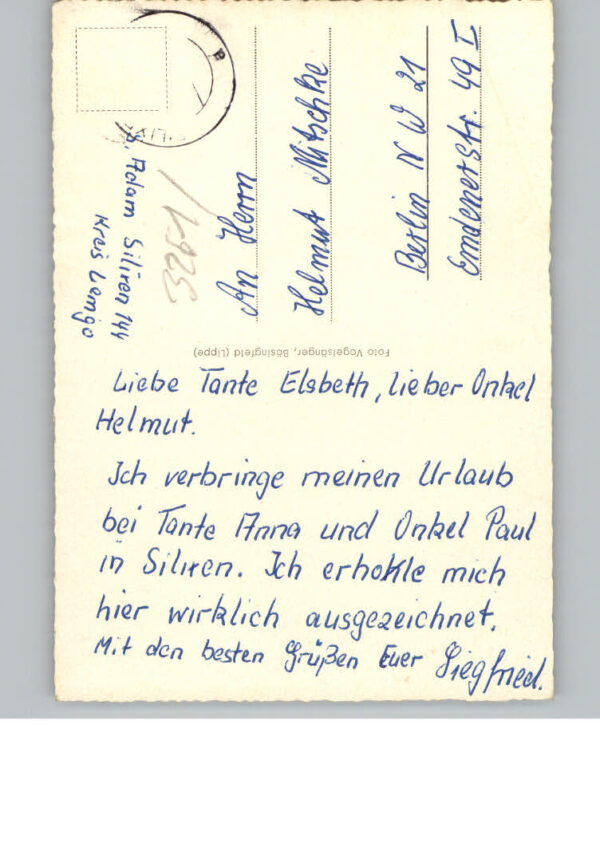 Adam Siliren 144
Kreis Lemgo
An Herrn
Helmut Mitschke
Berlin NW 21
Emdenerstr. 49 I
Foto Vogelsänger, Bösingfeld (Lippe)
Liebe Tante Elsbeth, lieber Onkel
Helmut.
Ich verbringe meinen Urlaub
bei Tante Anna und Onkel Paul
in Siliren. Ich erhohle mich
hier wirklich ausgezeichnet.
Mit den besten Grüßen Euer Siegfried.